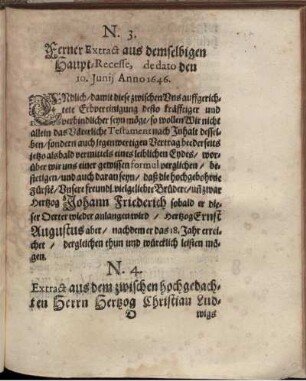 N. 3.
Ferner Extract aus demselbigen
Haupt-Recesse, de dato den
10. Junij Anno 1646.
ENdlich / damit diese zwischen Vns auffgerich-
tete Erbvereinigung desto kräfftiger und
verbindlicher seyn möge / so wollen Wir nicht
allein das Väterliche Testament nach Inhalt dessel-
ben / sondern auch legenwertigen Vertrag beederseits
jetzo alsbald vermittels eines leiblichen Eydes / wor-
über wir uns einer gewissen formul verglichen / be-
stetigen / und auch daran seyn / daß die hochgebohrne
Fürste / Vnsere freundl. vielgeliebte Brüder / und zwar
Hertzog Johann Friederich sobald er die-
ser Oerter wieder anlangen wird / Hertzog Ernst
Augustus aber / nachdem er das 18. Jahr errei-
chet / dergleichen thun und würcklich leisten mö-
gen.
N. 4.
Extract aus dem zwischen hochgedach-
ten Herrn Hertzog Christian Lud-
D wigs